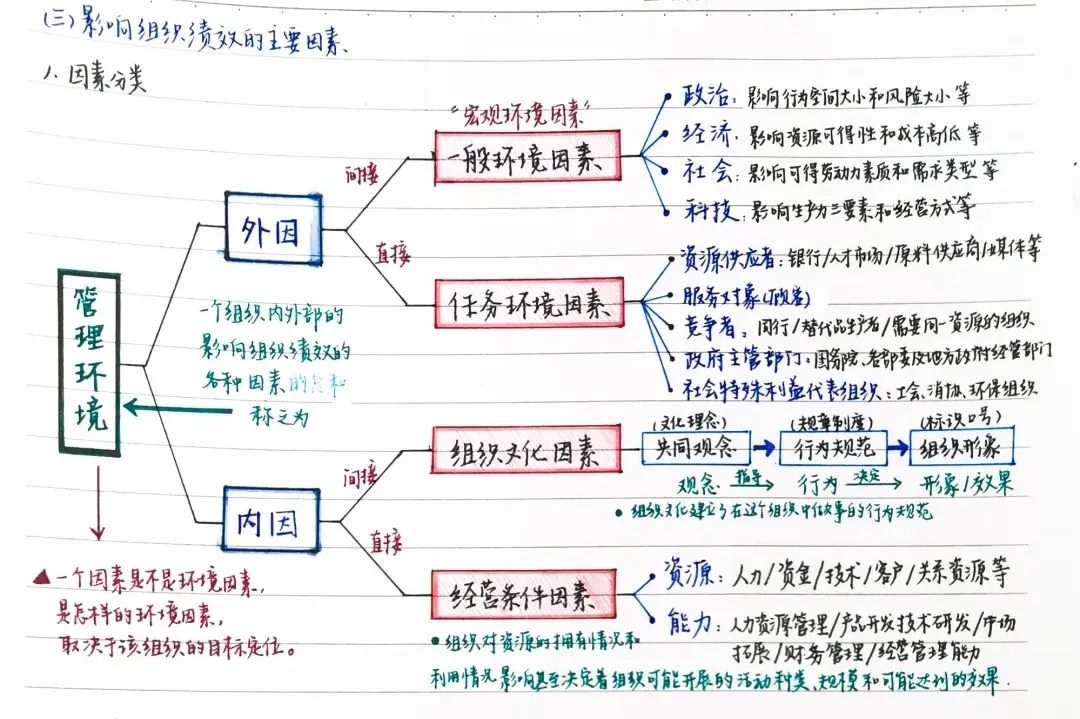 (三)影响组织绩效的主要因素、
1.因素分类
"宏观环境因素"
一般环境因素
政治：影响行为空间大小和风险大小等
经济：影响资源可得性和成本高低等
社会：影响可得劳动力素质和需求类型等
科技：影响生产力三要素和经营方式等
间接
外因
直接
任务环境因素
资源供应者：银行/人才市场/原料供应商/媒体等
服务对象(顾客)
竞争者：同行/替代品生产者/需要同一资源的组织
政府主管部门：国务院、各部委及地方政府经管部门
社会特殊利益代表组织：工会、消协、环保组织
管理环境
一个组织内外部的
影响组织绩效的
各种因素的总和
称之为
间接
组织文化因素
(文化理念)
共同观念
(规章制度)
行为规范
(标识口号)
组织形象
观念 指导 行为 决定 形象/效果
组织文化建立了在这个组织中做事的行为规范
内因
直接
经营条件因素
资源：人力/资金/技术/客户/关系资源等
能力：人力资源管理/产品开发技术研发/市场
拓展/财务管理/经营管理能力
组织对资源的拥有情况和
利用情况影响甚至决定着组织可能开展的活动种类、规模和可能达到的效果.
▲一个因素是不是环境因素，
是怎样的环境因素，
取决于该组织的目标定位。